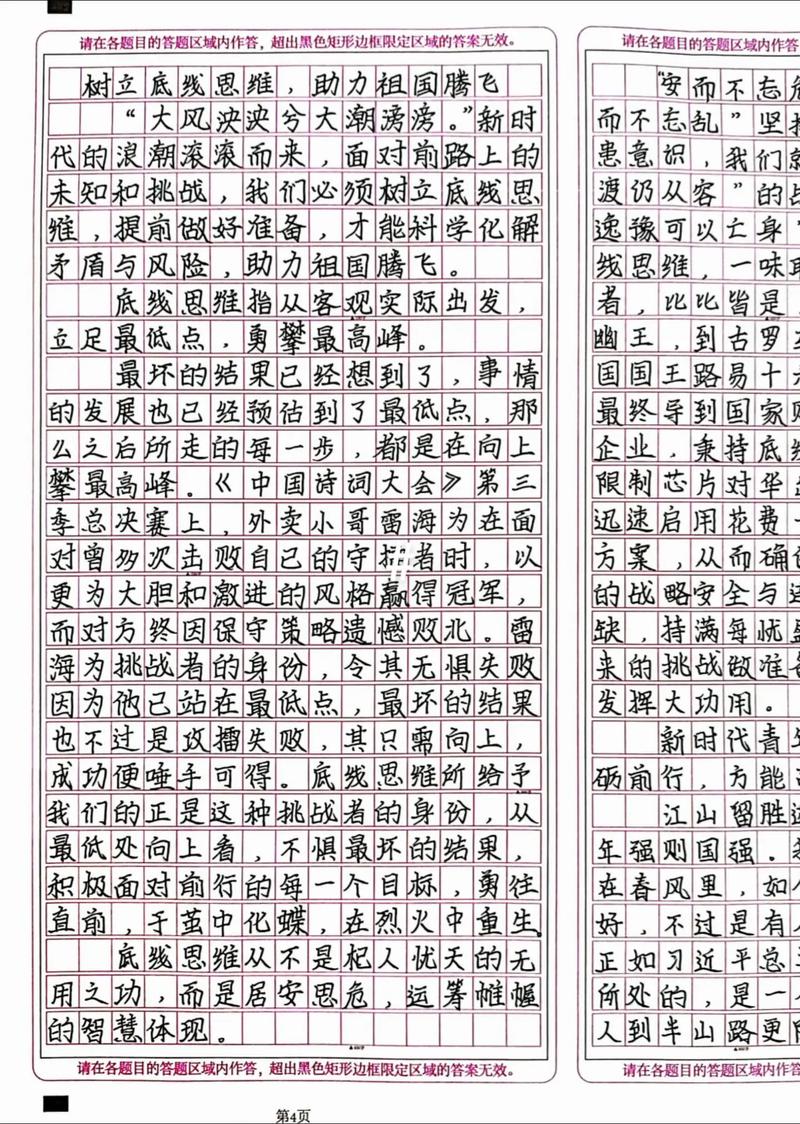 请在各题目的答题区域内作答，超出黑色矩形边框限定区域的答案无效。
树立底线思维，助力祖国腾飞
“大风泱泱兮大潮滂滂。”新时
代的浪潮滚滚而来，面对前路上的
未知和挑战，我们必须树立底线思
维，提前做好准备，才能科学化解
矛盾与风险，助力祖国腾飞。
底线思维指从客观实际出发，
立足最低点，勇攀最高峰。
最坏的结果已经想到了，事情
的发展也已经预估到了最低点，那
么之后所走的每一步，都是在向上
攀最高峰。《中国诗词大会》第三
季总决赛上，外卖小哥雷海为在面
对曾多次击败自己的守擂者时，以
更为大胆和激进的风格赢得冠军，
而对方终因保守策略遗憾败北。雷
海为挑战者的身份，令其无惧失败
因为他已站在最低点，最坏的结果
也不过是攻擂失败，其只需向上，
成功便唾手可得。底线思维所给予
我们的正是这种挑战者的身份，从
最低处向上看，不惧最坏的结果，
积极面对前行的每一个目标，勇往
直前，于茧中化蝶，在烈火中重生。
底线思维从不是杞人忧天的无
用之功，而是居安思危，运筹帷幄
的智慧体现。
请在各题目的答题区域内作答，超出黑色矩形边框限定区域的答案无效。
第4页
请在各题目的答题区域内作答
“安而不忘危
而不忘乱”坚持
患意识，我们就
渡仍从容”的战
逸豫可以亡身”
线思维，一味耽
者，比比皆是
幽王，到古罗
国国王路易十六
最终导到国家败
企业，秉持底线
限制芯片对华
迅速启用花费
方案，从而确保
的战略安全与运
缺，持满每忧盈
来的挑战做准备
发挥大功用。
新时代青年
砺前行，方能
江山留胜迹
年强则国强。我
在春风里，如
好，不过是有人
正如习近平总
所处的，是一
人到半山路更陡
请在各题目的答题区域内作答